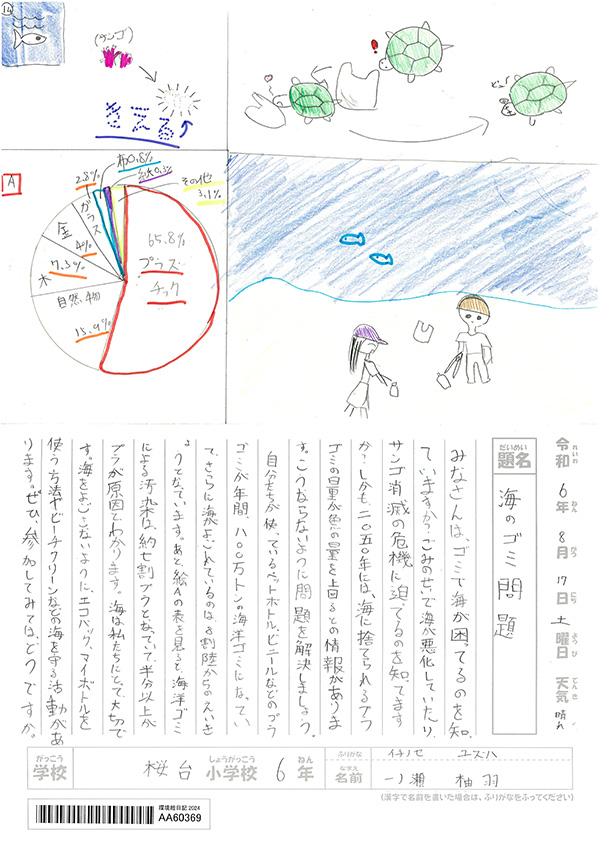 14
(サンゴ)
きえる
A
布0.8%
紙0.3%
その他
3.1%
2.8%
ガラス
金
4%
木
7.3%
自然物
15.9%
65.8%
プラス
チック
令和6年8月17日土曜日 天気 晴れ
れいわ ねん がつ にち ようび てんき
だいめい
題名
海のゴミ問題
みなさんは、ゴミで海が困ってるのを知っ
ていますか?ごみのせいで海が悪化していたり、
サンゴ消滅の危機に迫てるのを知ってます
か?しかも、二〇五〇年には、海に捨てられるプラ
ゴミの量が魚の量を上回るとの情報がありま
す。こうならないように問題を解決しましょう。
自分たちが使っているペットボトル、ビニールなどのプラ
ゴミが年間、八〇〇万トンの海洋ゴミになってい
て、さらに海がよごれているのは、8割陸からのえいき
ょうとなています。あと絵Aの表を見ると、海洋ゴミ
による汚染は、約七割プラとなていて、半分以上が
プラが原因とわかります。海は私たちにとって大切で
す。海をよごさないように、エコバック、マイボトルを
使う方法やビーチクリーンなどの海を守る活動があ
ります。ぜひ、参加してみては、どうですか。
がっこう
学校
桜台
しょうがっこう
小学校
6
ねん
年
ふりがな
イチノセ ユズハ
なまえ
名前
一ノ瀬 柚羽
(漢字で名前を書いた場合は、ふりがなをふってください)
環境絵日記2024
AA60369